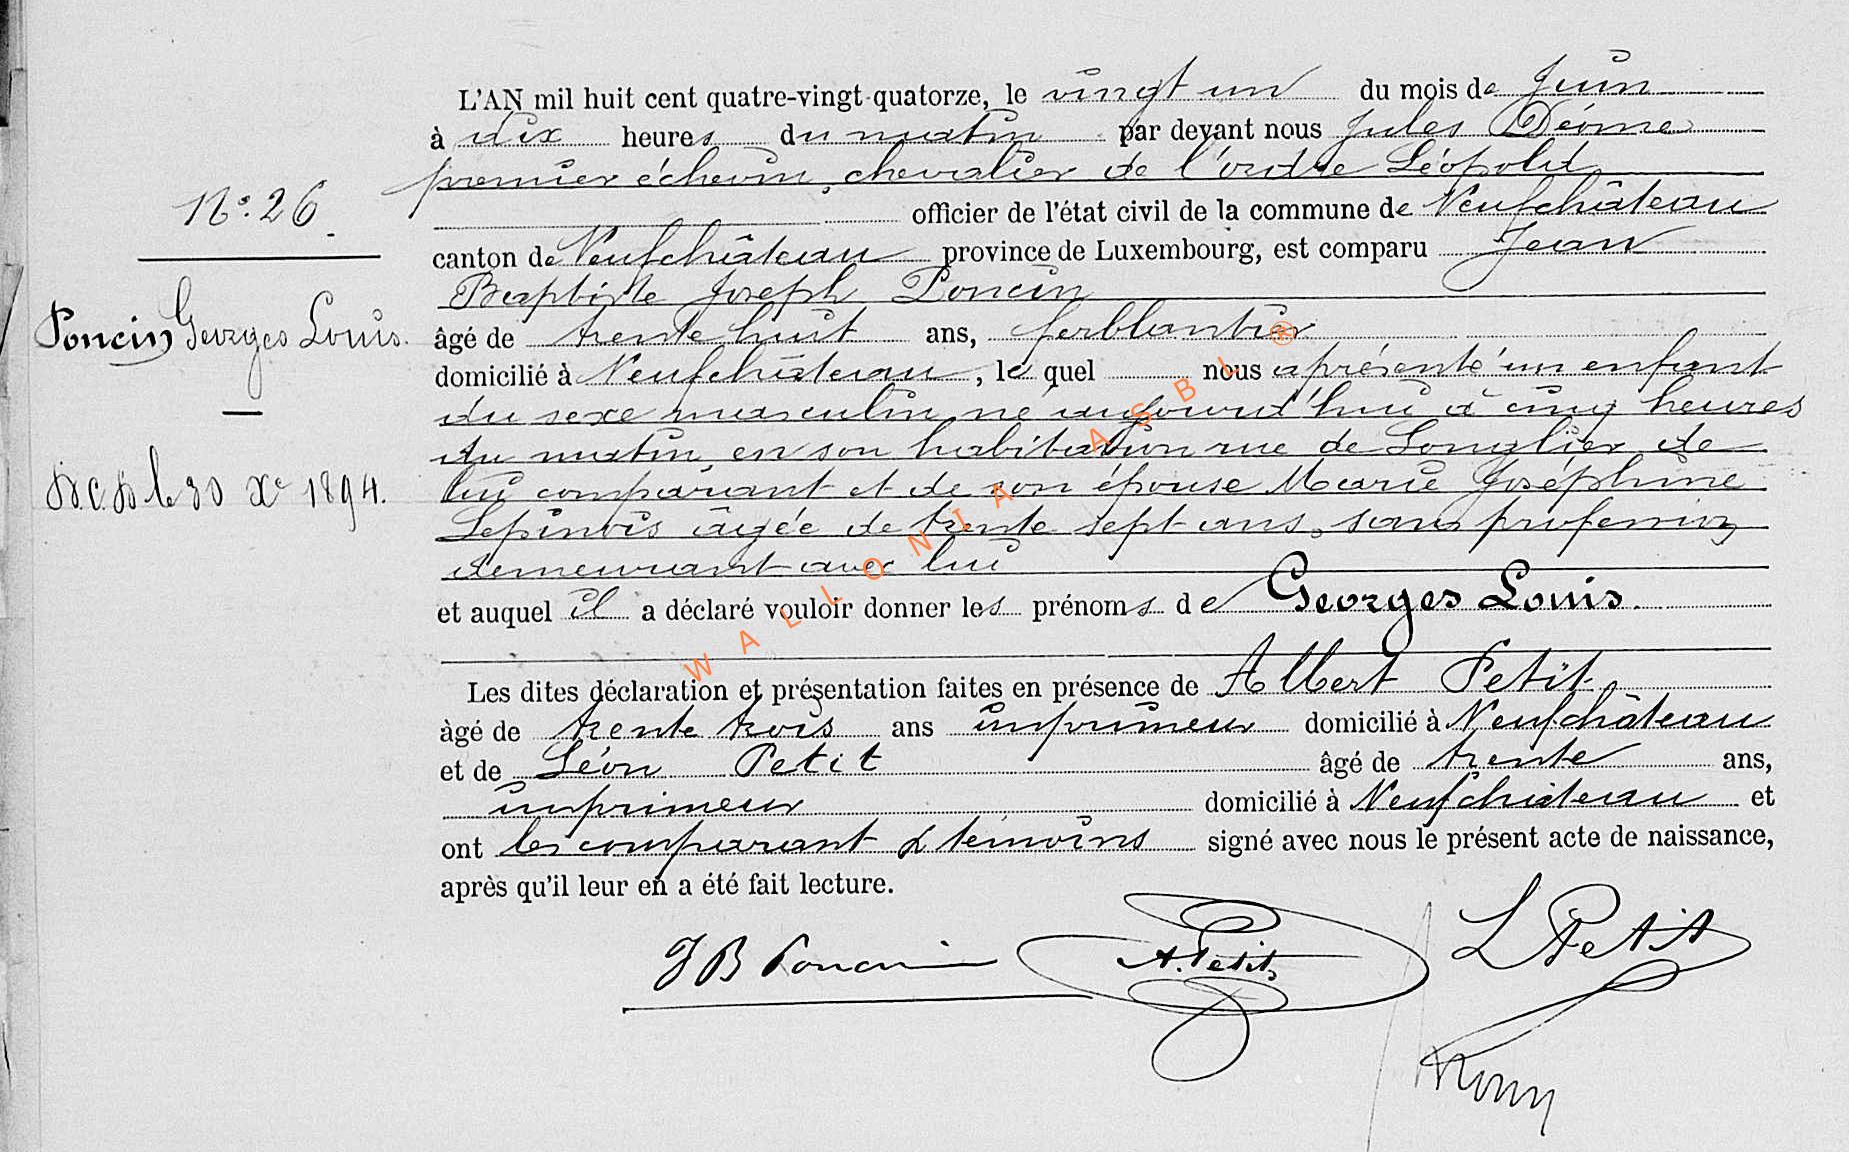 L'AN mil huit cent quatre-vingt-quatorze, le vingt un du mois de Juin
à dix heures du matin par devant nous Jules
premier échevin, chevalier de l'ordre Léopold
officier de l'état civil de la commune de Neufchâteau
canton de Neufchâteau province de Luxembourg, est comparu Jean
Baptiste Joseph Poncin
âgé de trente huit ans, ferblantier
domicilié à Neufchâteau, le quel nous a présenté un enfant
du sexe masculin né aujourd'hui à cinq heures
du matin, en son habitation rue de Longlier de
lui comparant et de son épouse Marie Joséphine
Lepinois âgée de trente sept ans, sans profession
demeurant avec lui
et auquel il a déclaré vouloir donner les prénoms de Georges Louis.
Les dites déclaration et présentation faites en présence de Albert Petit
âgé de trente trois ans imprimeur domicilié à Neufchâteau
et de Léon Petit âgé de trente ans,
imprimeur domicilié à Neufchâteau et
ont les comparant & témoins signé avec nous le présent acte de naissance,
après qu'il leur en a été fait lecture.
JB Poncin A. Petit L Petit
N°. 26
Poncin Georges Louis.
le 30 Xe 1894.
WALLONIA ASBL ®